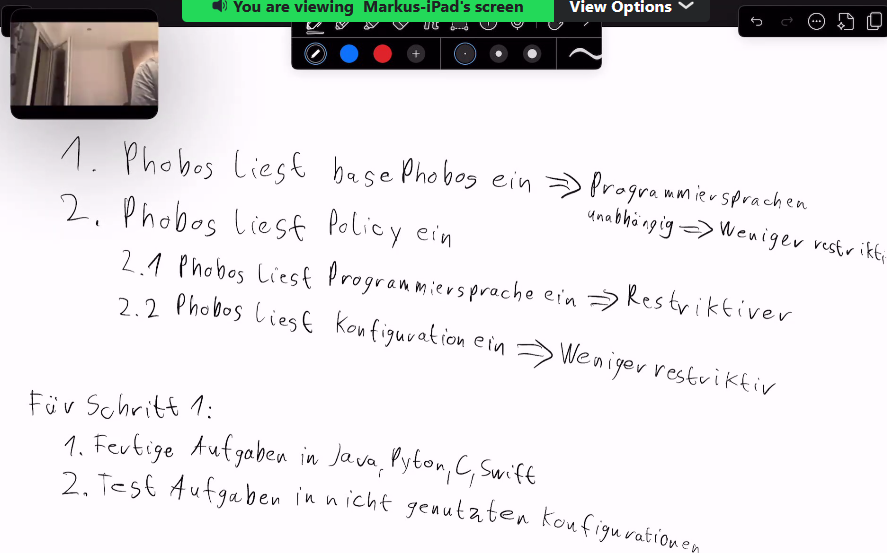 You are viewing Markus-iPad's screen
View Options
1. Phobos liest basePhobos ein => Programmiersprachen
unabhängig => Weniger restrikti
2. Phobos liest Policy ein
2.1 Phobos liest Programmiersprache ein => Restriktiver
2.2 Phobos liest Konfiguration ein => Weniger restriktiv
Für Schritt 1:
1. Fertige Aufgaben in Java, Pyton, C, Swift
2. Test Aufgaben in nicht genutzten Konfigurationen